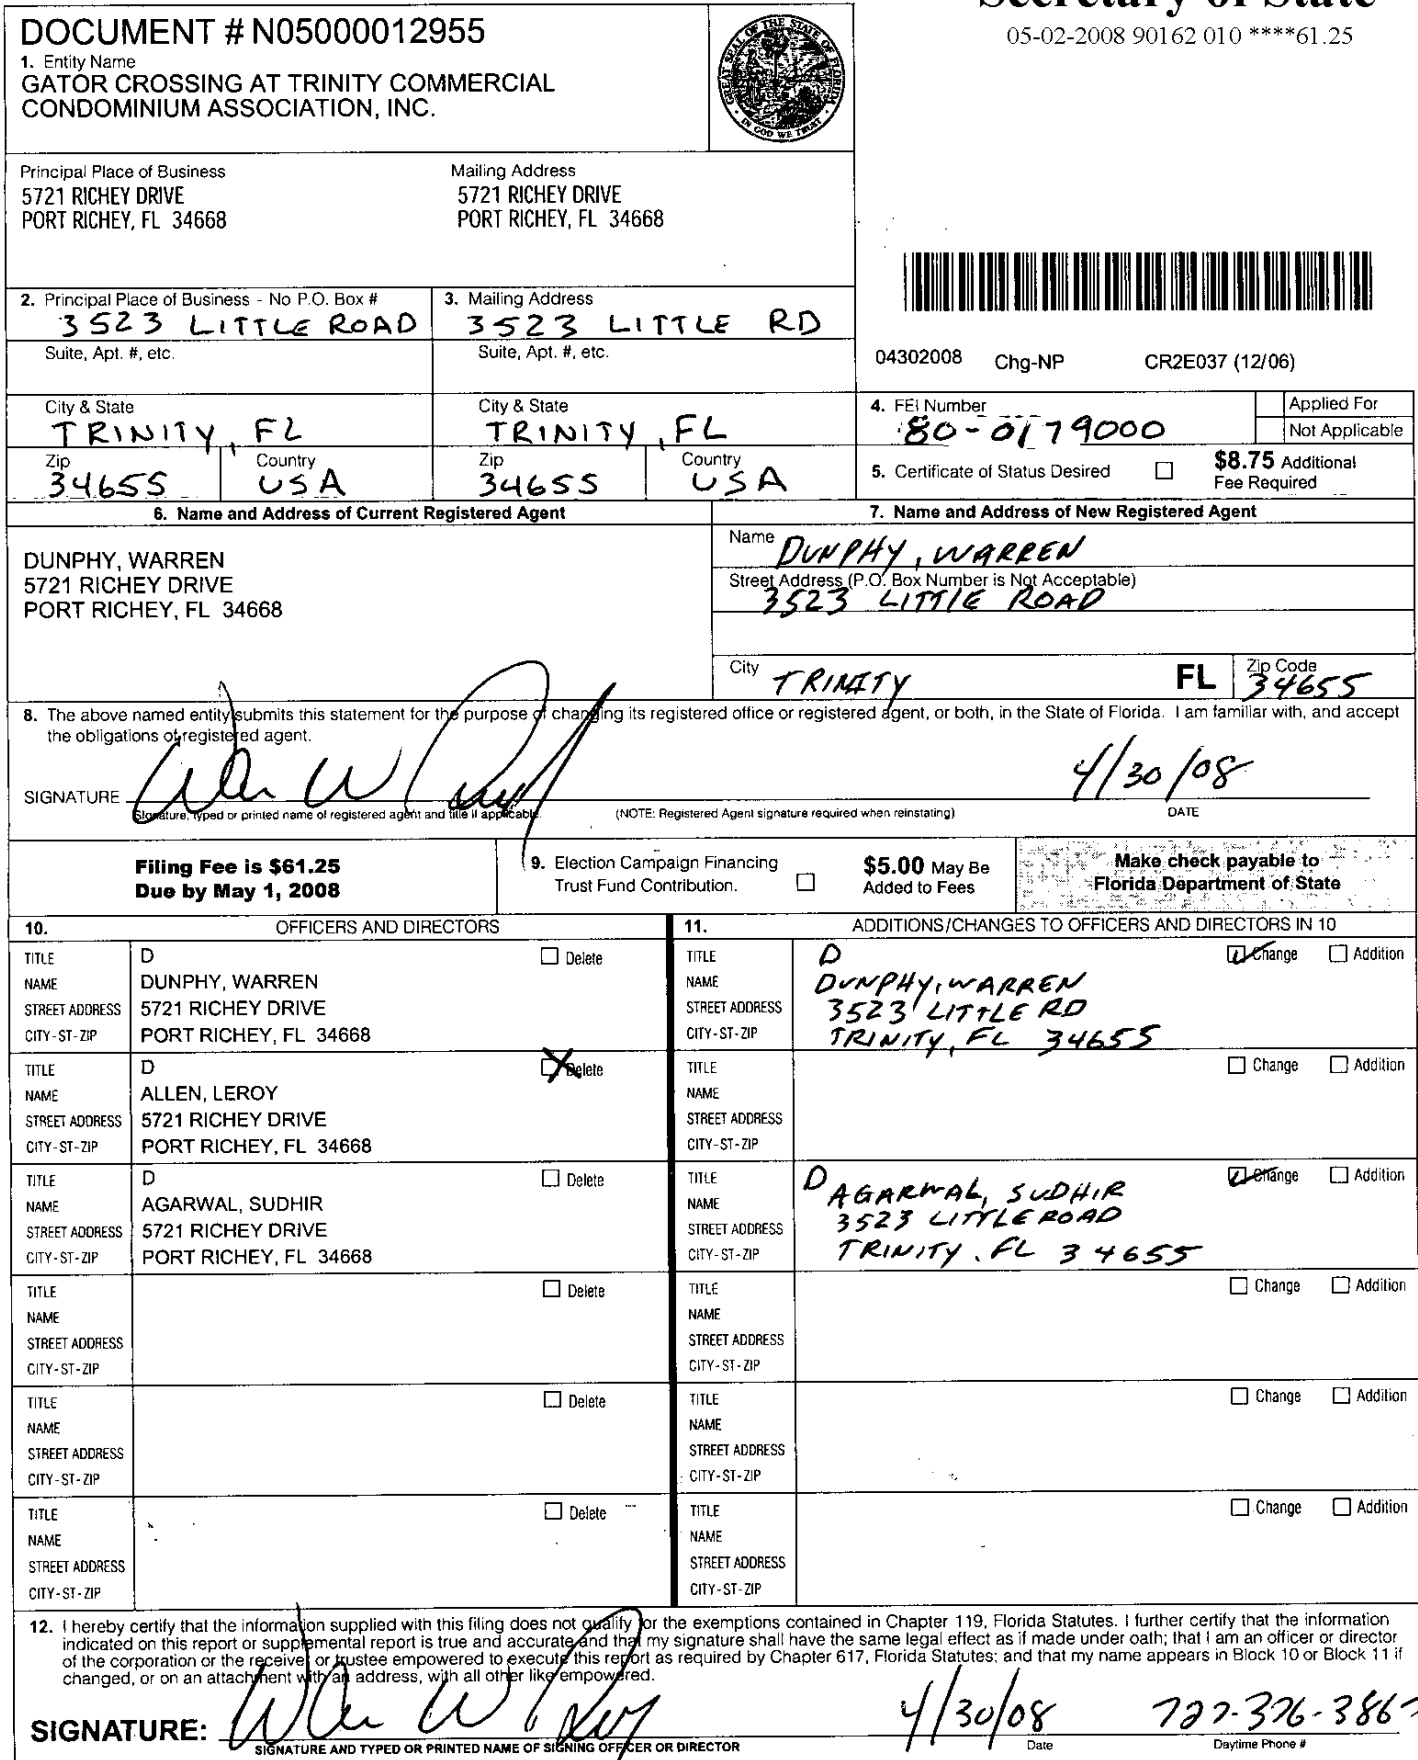 Secretary of State
05-02-2008 90162 010 ****61.25
DOCUMENT # N05000012955
1. Entity Name
GATOR CROSSING AT TRINITY COMMERCIAL
CONDOMINIUM ASSOCIATION, INC.
GREAT SEAL OF THE STATE OF FLORIDA
IN GOD WE TRUST
Principal Place of Business
5721 RICHEY DRIVE
PORT RICHEY, FL 34668
Mailing Address
5721 RICHEY DRIVE
PORT RICHEY, FL 34668
2. Principal Place of Business - No P.O. Box #
3523 LITTLE ROAD
3. Mailing Address
3523 LITTLE RD
Suite, Apt. #, etc.
Suite, Apt. #, etc.
04302008 Chg-NP CR2E037 (12/06)
City & State
TRINITY, FL
City & State
TRINITY, FL
4. FEI Number
80-0179000
Applied For
Not Applicable
Zip
34655
Country
USA
Zip
34655
Country
USA
5. Certificate of Status Desired
$8.75 Additional
Fee Required
6. Name and Address of Current Registered Agent
DUNPHY, WARREN
5721 RICHEY DRIVE
PORT RICHEY, FL 34668
7. Name and Address of New Registered Agent
Name DUNPHY, WARREN
Street Address (P.O. Box Number is Not Acceptable)
3523 LITTLE ROAD
City TRINITY FL Zip Code 34655
8. The above named entity submits this statement for the purpose of changing its registered office or registered agent, or both, in the State of Florida. I am familiar with, and accept
the obligations of registered agent.
SIGNATURE
4/30/08
Signature, typed or printed name of registered agent and title if applicable.
(NOTE: Registered Agent signature required when reinstating)
DATE
Filing Fee is $61.25
Due by May 1, 2008
9. Election Campaign Financing
Trust Fund Contribution.
$5.00 May Be
Added to Fees
Make check payable to
Florida Department of State
10. OFFICERS AND DIRECTORS
11. ADDITIONS/CHANGES TO OFFICERS AND DIRECTORS IN 10
TITLE D Delete
NAME DUNPHY, WARREN
STREET ADDRESS 5721 RICHEY DRIVE
CITY-ST-ZIP PORT RICHEY, FL 34668
TITLE D Change Addition
NAME DUNPHY, WARREN
STREET ADDRESS 3523 LITTLE RD
CITY-ST-ZIP TRINITY, FL 34655
TITLE D X Delete
NAME ALLEN, LEROY
STREET ADDRESS 5721 RICHEY DRIVE
CITY-ST-ZIP PORT RICHEY, FL 34668
TITLE Change Addition
NAME
STREET ADDRESS
CITY-ST-ZIP
TITLE D Delete
NAME AGARWAL, SUDHIR
STREET ADDRESS 5721 RICHEY DRIVE
CITY-ST-ZIP PORT RICHEY, FL 34668
TITLE D Change Addition
NAME AGARWAL, SUDHIR
STREET ADDRESS 3523 LITTLE ROAD
CITY-ST-ZIP TRINITY, FL 34655
TITLE Delete
NAME
STREET ADDRESS
CITY-ST-ZIP
TITLE Change Addition
NAME
STREET ADDRESS
CITY-ST-ZIP
TITLE Delete
NAME
STREET ADDRESS
CITY-ST-ZIP
TITLE Change Addition
NAME
STREET ADDRESS
CITY-ST-ZIP
TITLE Delete
NAME
STREET ADDRESS
CITY-ST-ZIP
TITLE Change Addition
NAME
STREET ADDRESS
CITY-ST-ZIP
12. I hereby certify that the information supplied with this filing does not qualify for the exemptions contained in Chapter 119, Florida Statutes. I further certify that the information
indicated on this report or supplemental report is true and accurate and that my signature shall have the same legal effect as if made under oath; that I am an officer or director
of the corporation or the receiver or trustee empowered to execute this report as required by Chapter 617, Florida Statutes; and that my name appears in Block 10 or Block 11 if
changed, or on an attachment with an address, with all other like empowered.
SIGNATURE:
4/30/08
727-376-3867
SIGNATURE AND TYPED OR PRINTED NAME OF SIGNING OFFICER OR DIRECTOR
Date
Daytime Phone #